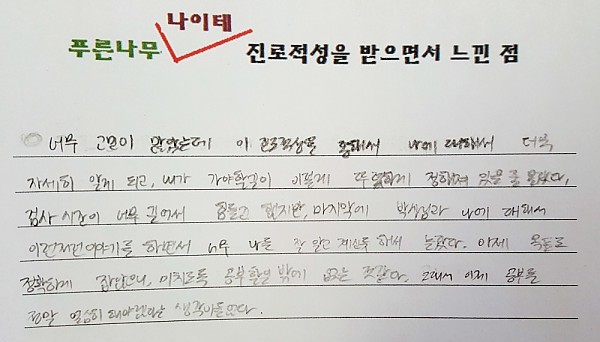 나이테
푸른나무 진로적성을 받으면서 느낀 점
너무 고민이 많았는데 이 진로적성을 통해서 나에 대해서 더욱
자세히 알게 되고, 내가 가야할길이 이렇게 뚜렷하게 정해져 있을 줄 몰랐다.
검사 시간이 너무 길어서 힘들긴 했지만, 마지막에 나에 대해서
이런저런이야기를 하면서 너무 나를 잘 알고 계신듯 해서 놀랐다. 이제 목표도
정확하게 잡았으니, 미치도록 공부할일 밖에 없는 것같다. 그래서 이제 공부를
정말 열심히 해야겠다는 생각이들었다.